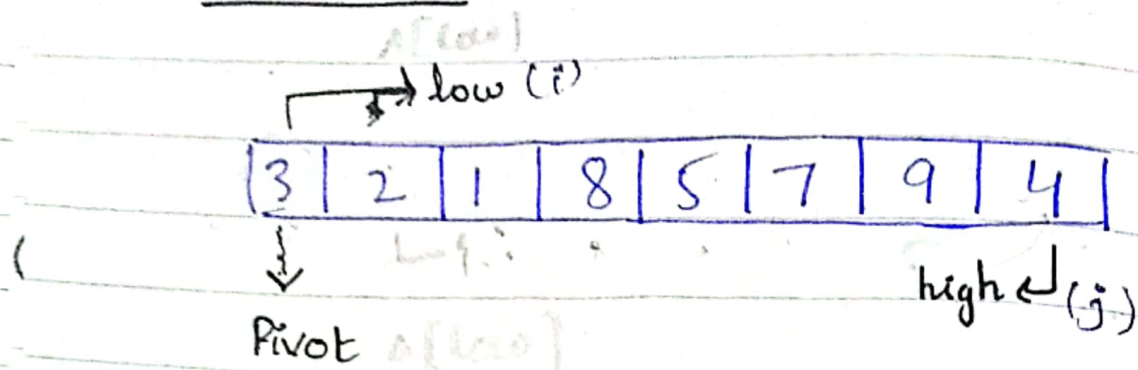 low (i)
3 2 1 8 5 7 9 4
high (j)
Pivot